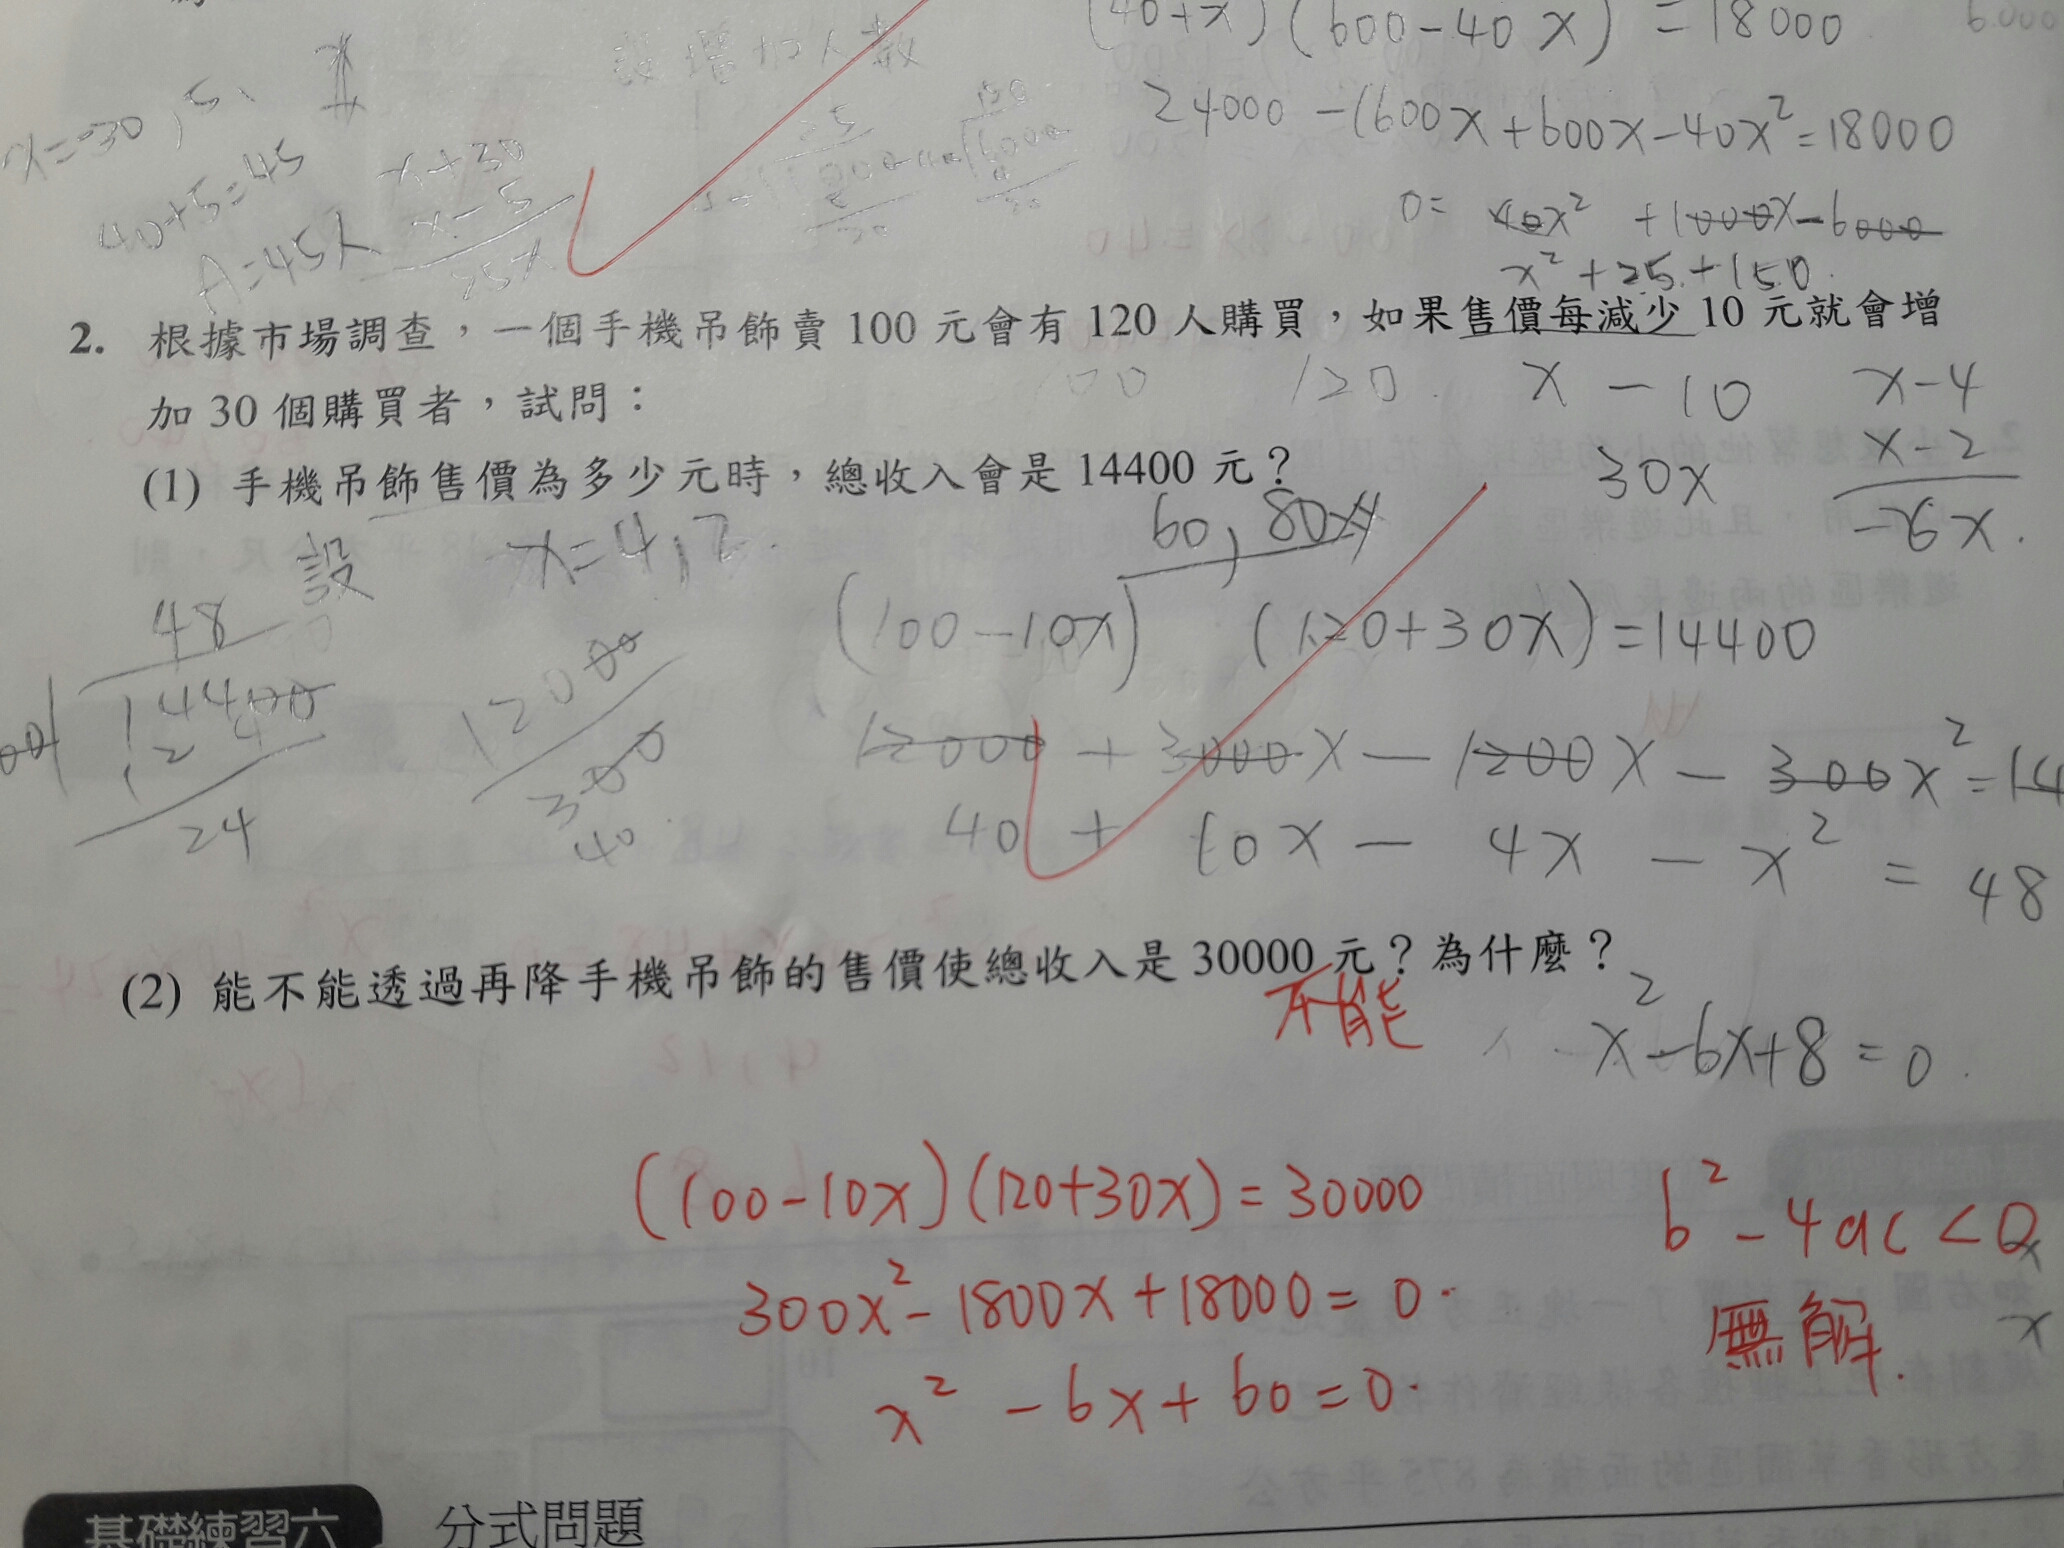 (40+x)(600-40x)=18000
24000-1600x+600x-40x²=18000
0= 40x² +1000x-6000
x²+25+150.
設增加人數
x=-30,5、
40+5=45
A=45人
x+30
x-5
25x
2. 根據市場調查，一個手機吊飾賣 100 元會有 120 人購買，如果售價每減少 10 元就會增
100 120. x-10 x-4
加 30 個購買者，試問：
30x x-2
-6x.
(1) 手機吊飾售價為多少元時，總收入會是 14400 元？
設 x=4,2. 60,80
(100-10x) (120+30x)=14400
48
14400
12
24
12000
300
40
12000+3000x-1200x-300x²=14
40+10x-4x-x²=48
(2) 能不能透過再降手機吊飾的售價使總收入是 30000 元？為什麼？
不能
x²-6x+8=0.
(100-10x)(120+30x)=30000
b²-4ac<0
300x²-1800x+18000=0.
無解.
x²-6x+60=0.
基礎練習六 分式問題